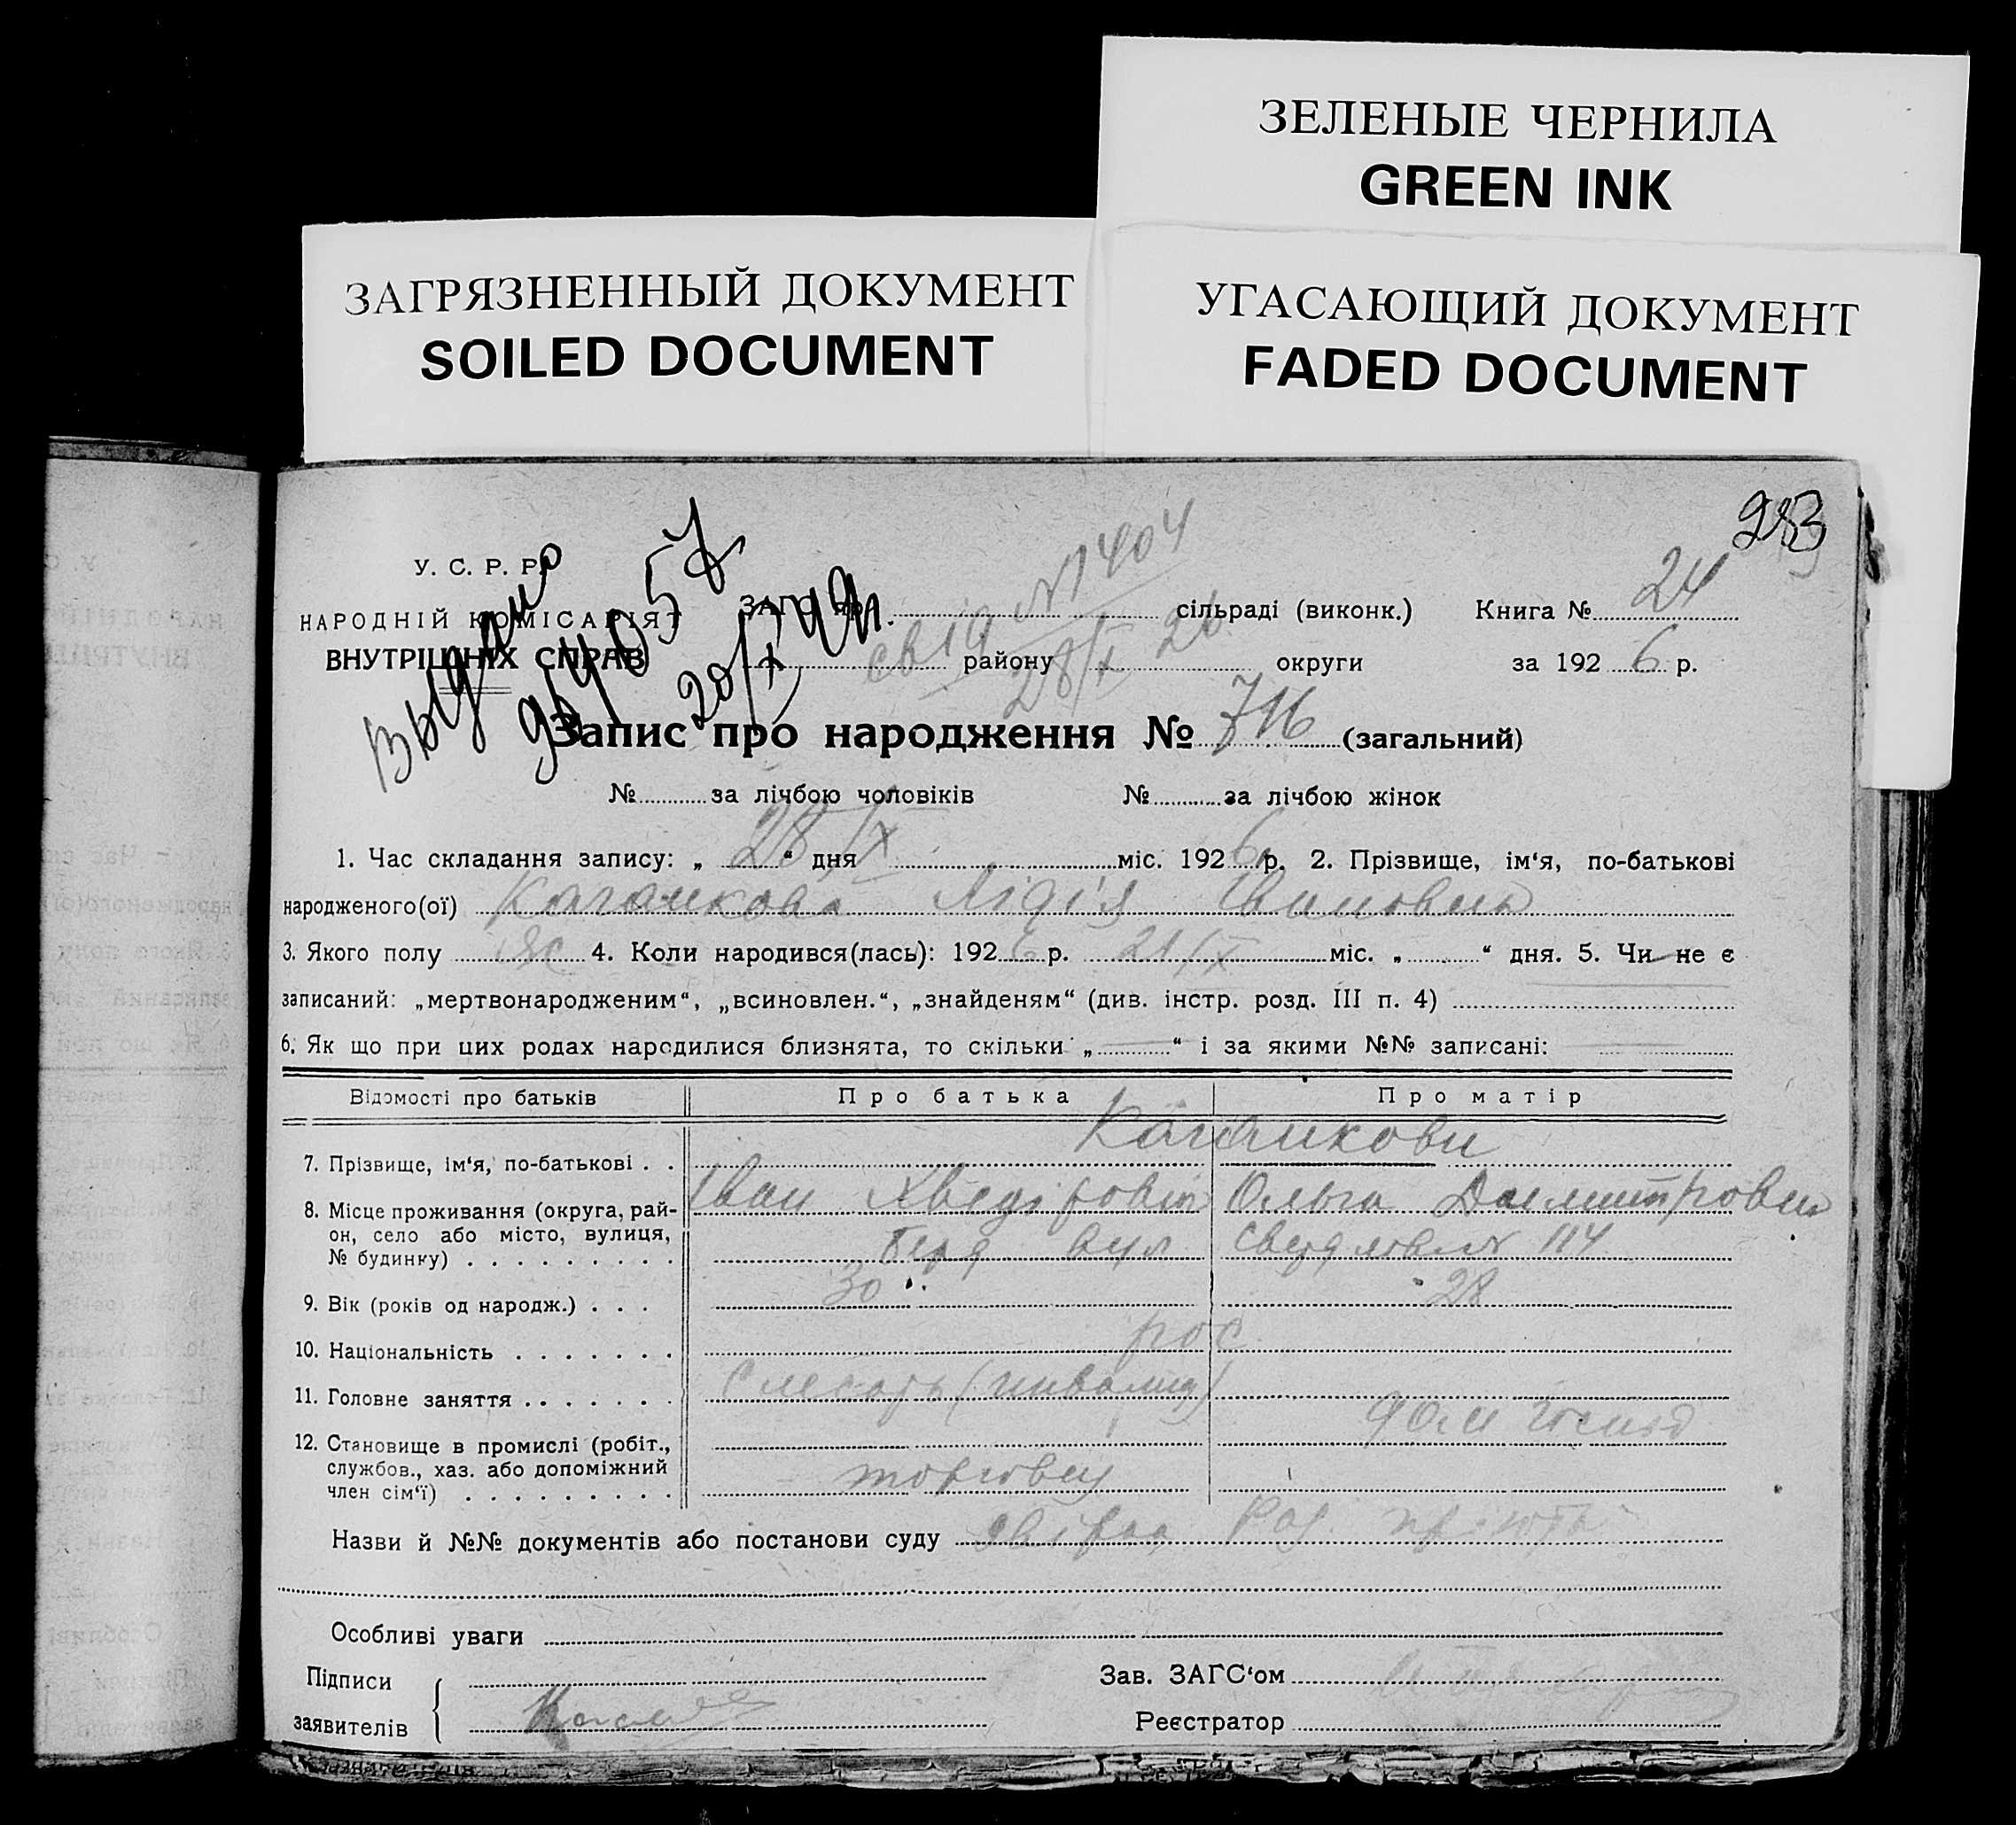 ЗЕЛЕНЫЕ ЧЕРНИЛА
GREEN INK
ЗАГРЯЗНЕННЫЙ ДОКУМЕНТ
SOILED DOCUMENT
УГАСАЮЩИЙ ДОКУМЕНТ
FADED DOCUMENT
У. С. Р. Р.
НАРОДНІЙ КОМІСАРІЯТ
ВНУТРІШНІХ СПРАВ
Выдано
20/X
свід №1404
28/IX 26
ЗАГС при сільраді (виконк.) Книга № 24
району округи за 1926 р.
Запис про народження № 716 (загальний)
№ за лічбою чоловіків № за лічбою жінок
1. Час складання запису: „28“ дня IX міс. 1926 р. 2. Прізвище, ім‘я, по-батькові
народженого(ої) Лідія Івановна
3. Якого полу ж 4. Коли народився(лась): 1926 р. 21/IX міс. „ “ дня. 5. Чи не є
записаний: „мертвонародженим“, „всиновлен.“, „знайденям“ (див. інстр. розд. III п. 4)
6. Як що при цих родах народилися близнята, то скільки „ “ і за якими №№ записані:
Відомості про батьків Про батька Про матір
7. Прізвище, ім‘я, по-батькові . .
Іван Хведірович Ольга
8. Місце проживання (округа, рай-
он, село або місто, вулиця,
№ будинку) . . . . . . . . . вул 114
9. Вік (років од народж.) . . . 30 28
10. Національність . . . . . . . рос
11. Головне заняття . . . . . . . Слесарь (инвалид)
дом господ
12. Становище в промислі (робіт.,
службов., хаз. або допоміжний
член сім‘ї) . . . . . . . . . торговец
Назви й №№ документів або постанови суду
Особливі уваги
Підписи Зав. ЗАГС‘ом
заявителів Реєстратор